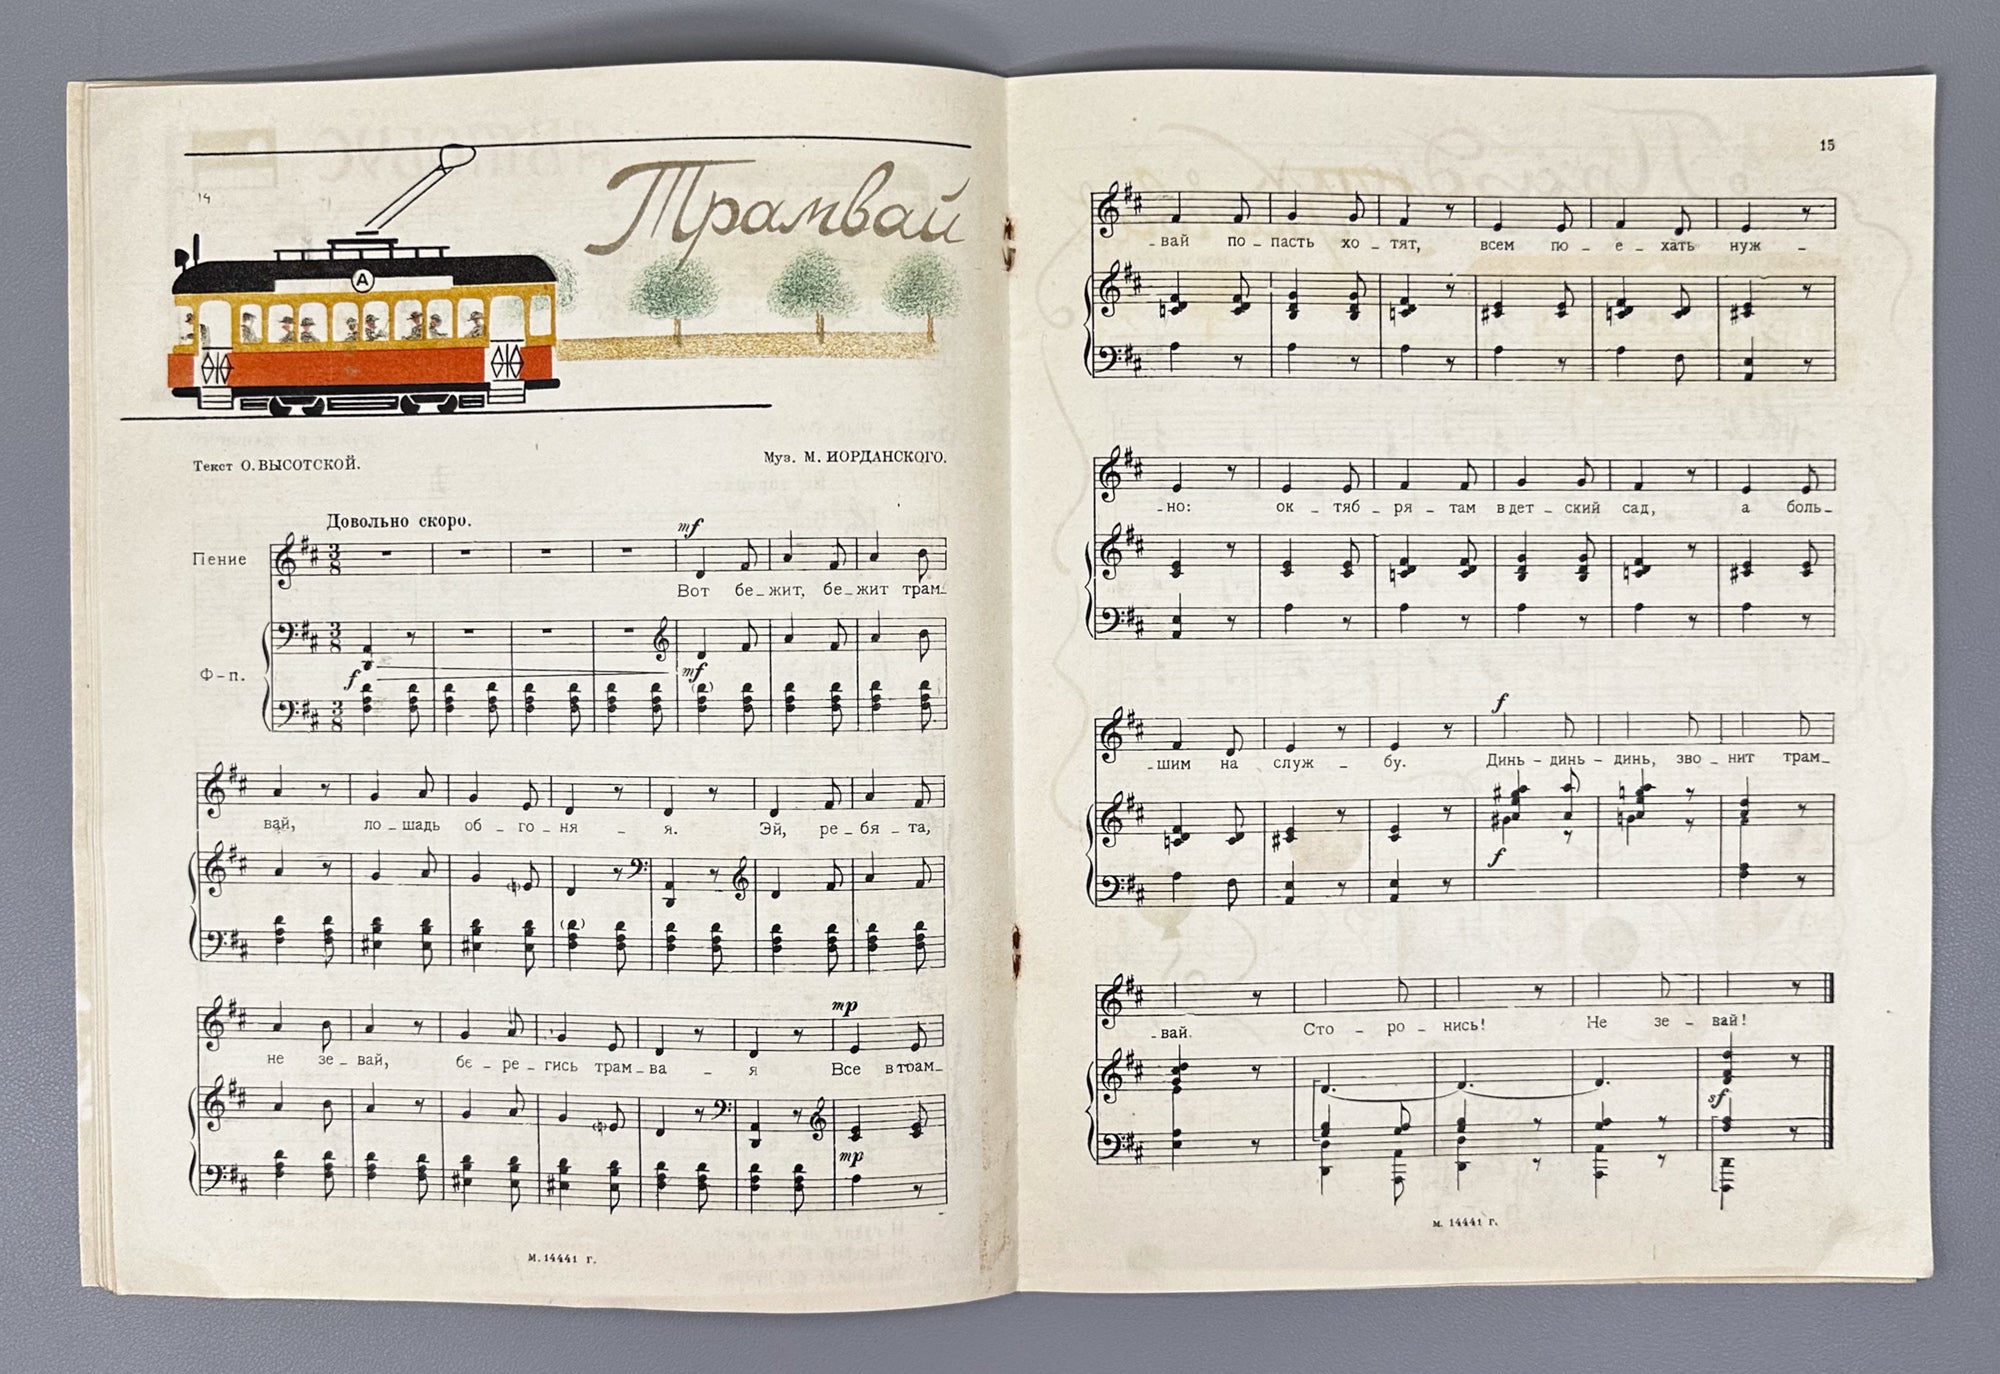 14
Трамвай
А
Текст О. ВЫСОТСКОЙ.
Муз. М. ИОРДАНСКОГО.
Довольно скоро.
mf
Пение
3
8
Вот бе_жит, бе_жит трам_
Ф-п.
3
8
f
mf
3
8
вай, ло_шадь об_го_ня _ я. Эй, ре_бя_та,
mp
не зе_вай, бе_ре_гись трам_ва _ я Все в трам_
mp
М. 14441 Г.
15
_вай по_пасть хо_тят, всем по_е_хать нуж _
_но: ок_тяб_ря_там в дет_ский сад, а боль_
f
_шим на служ _ бу. Динь-динь-динь, зво_нит трам_
f
_вай. Сто_ро_нись! Не зе_вай!
sf
М. 14441 Г.